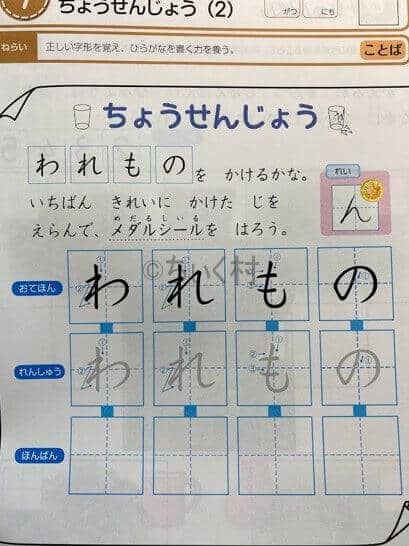 ちょうせんじょう（2）
がつ にち
ねらい 正しい字形を覚え、ひらがなを書く力を養う。 ことば
ちょうせんじょう
われもの を かけるかな。
いちばん きれいに かけた じを
えらんで、メダルシールを はろう。
めだるしいる
れい
ん
おてほん わ れ も の
©ちいく村
れんしゅう わ れ も の
ほんばん